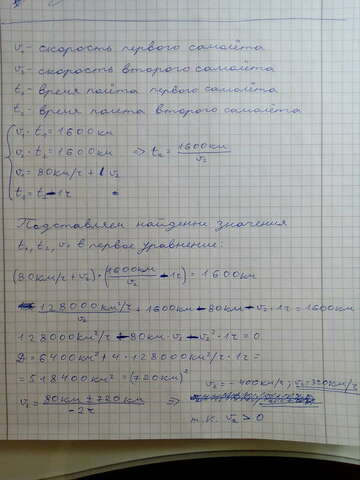 v₁ - скорость первого самолёта
v₂ - скорость второго самолёта
t₁ - время полёта первого самолёта
t₂ - время полета второго самолёта
v₁ · t₁ = 1600 км
v₂ · t₂ = 1600 км => t₂ = 1600 км / v₂
v₁ = 80 км/ч + v₂
t₁ = t₂ - 1 ч
Подставляем найденные значения
t₁, t₂, v₁ в первое уравнение:
(80 км/ч + v₂) · (1600 км / v₂ - 1 ч) = 1600 км
128000 км²/ч / v₂ + 1600 км - 80 км - v₂ · 1 ч = 1600 км
128000 км²/ч - 80 км · v₂ - v₂² · 1 ч = 0
D = 6400 км² + 4 · 128000 км²/ч · 1 ч =
= 518400 км² = (720 км)²
v₂ = -400 км/ч; v₂ = 320 км/ч
v₂ = 80 км ± 720 км / -2 ч =>
т.к. v₂ > 0